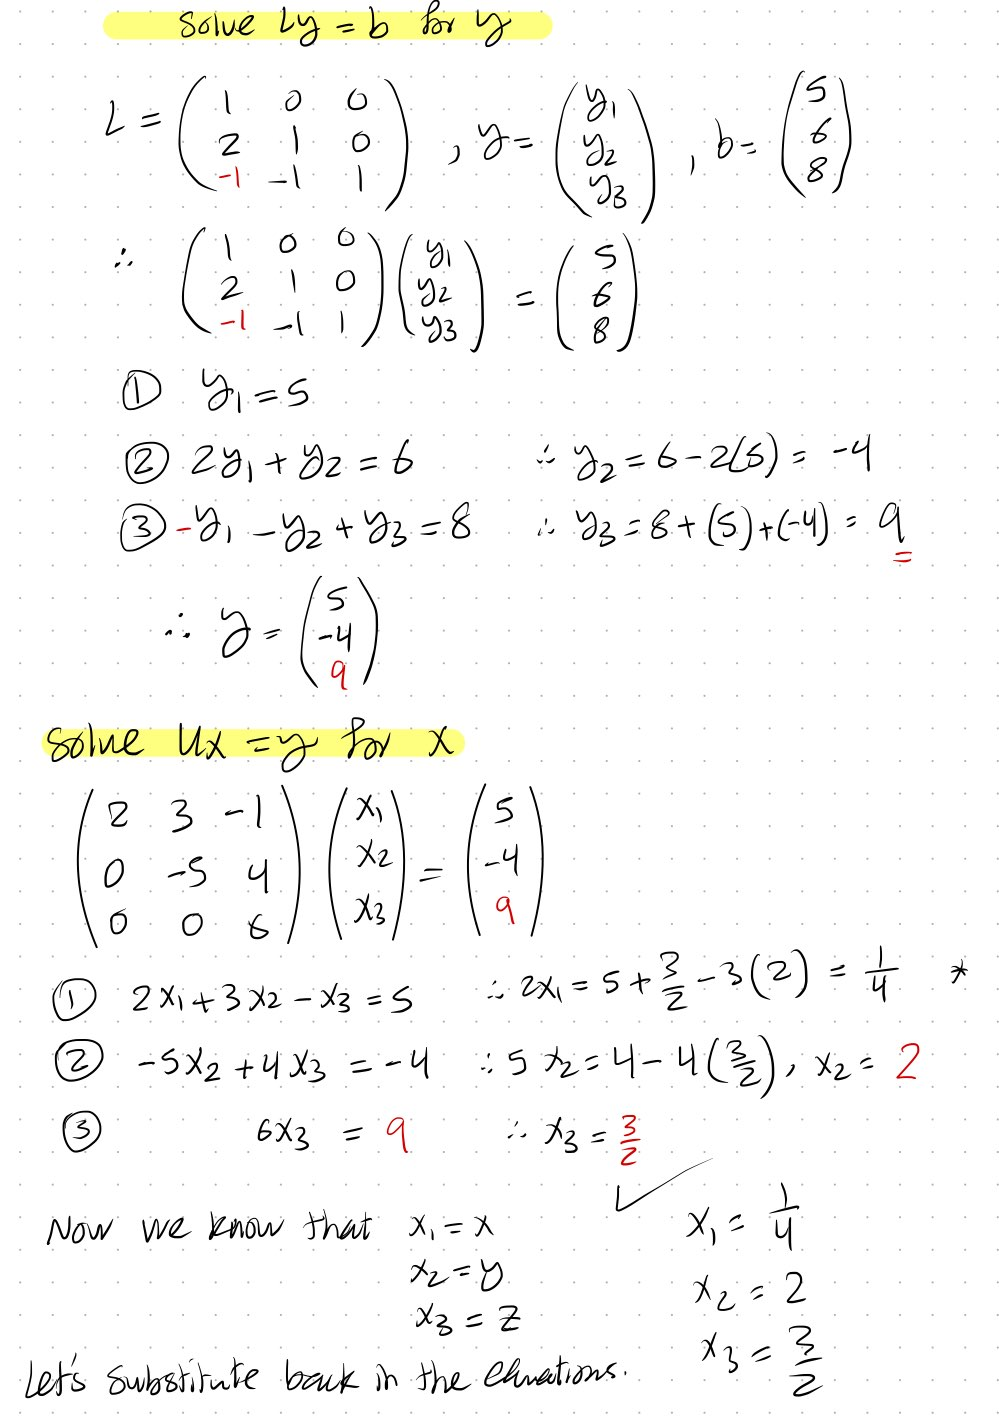 Solve Ly = b for y
L = ( 1 0 0 ; 2 1 0 ; -1 -1 1 ) , y = ( y₁ ; y₂ ; y₃ ) , b = ( 5 ; 6 ; 8 )
∴ ( 1 0 0 ; 2 1 0 ; -1 -1 1 ) ( y₁ ; y₂ ; y₃ ) = ( 5 ; 6 ; 8 )
① y₁ = 5
② 2y₁ + y₂ = 6 ∴ y₂ = 6 - 2(5) = -4
③ -y₁ - y₂ + y₃ = 8 ∴ y₃ = 8 + (5) + (-4) = 9
∴ y = ( 5 ; -4 ; 9 )
Solve Ux = y for x
( 2 3 -1 ; 0 -5 4 ; 0 0 6 ) ( x₁ ; x₂ ; x₃ ) = ( 5 ; -4 ; 9 )
① 2x₁ + 3x₂ - x₃ = 5 ∴ 2x₁ = 5 + 3/2 - 3(2) = 1/4 *
② -5x₂ + 4x₃ = -4 ∴ 5x₂ = 4 - 4(3/2), x₂ = 2
③ 6x₃ = 9 ∴ x₃ = 3/2
Now we know that x₁ = x ✓ x₁ = 1/4
x₂ = y x₂ = 2
x₃ = z x₃ = 3/2
Let's substitute back in the equations.